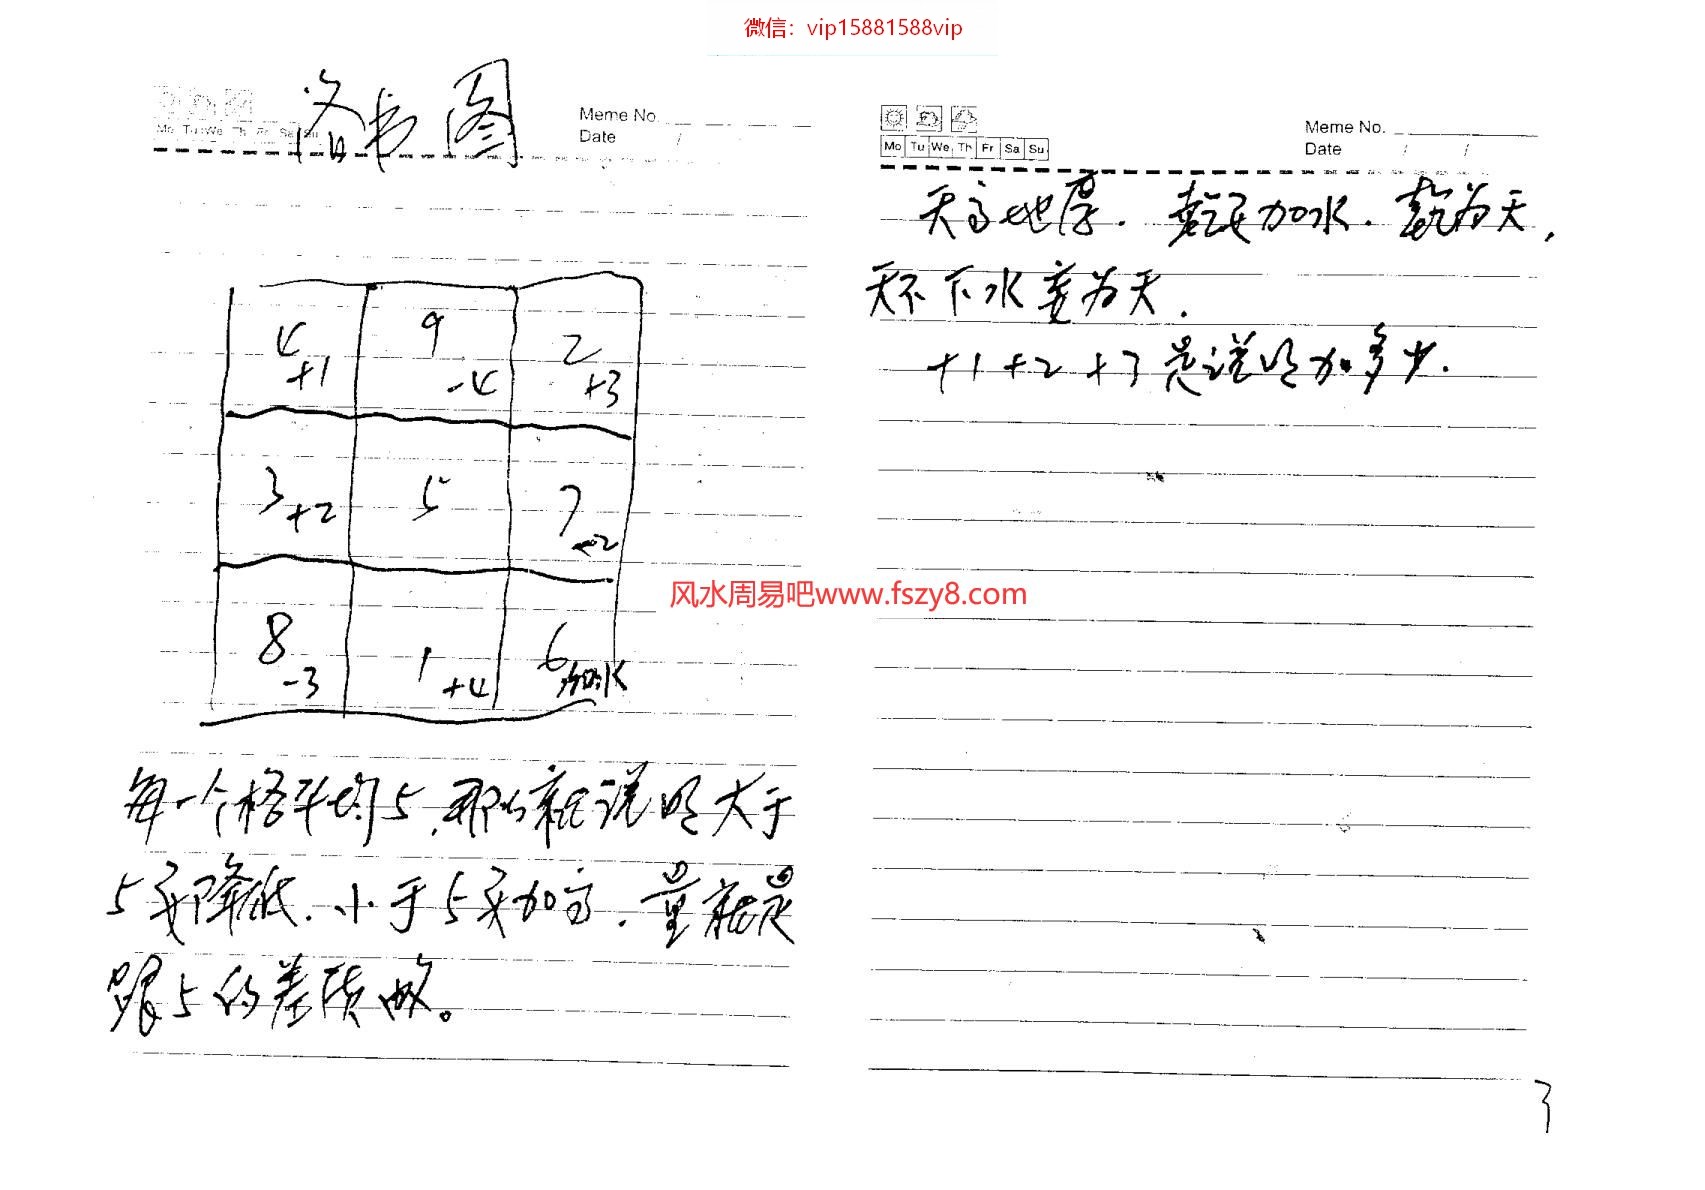 微信：vip15881588vip
洛书图
Meme No.
Date /
Mo Tu We Th Fr Sa Su
4 9 2
+1 -4 +3
3 5 7
+2 -2
8 1 6
-3 +4 加水
每一个格平均5，那么就说明大于
5要降低．小于5要加高．量就是
跟5的差质做。
Meme No.
Date / /
Mo Tu We Th Fr Sa Su
天高地厚．乾民加水．乾为天，
天不下水变为天．
+1 +2 +3 是说明加多少．
风水周易吧www.fszy8.com
3